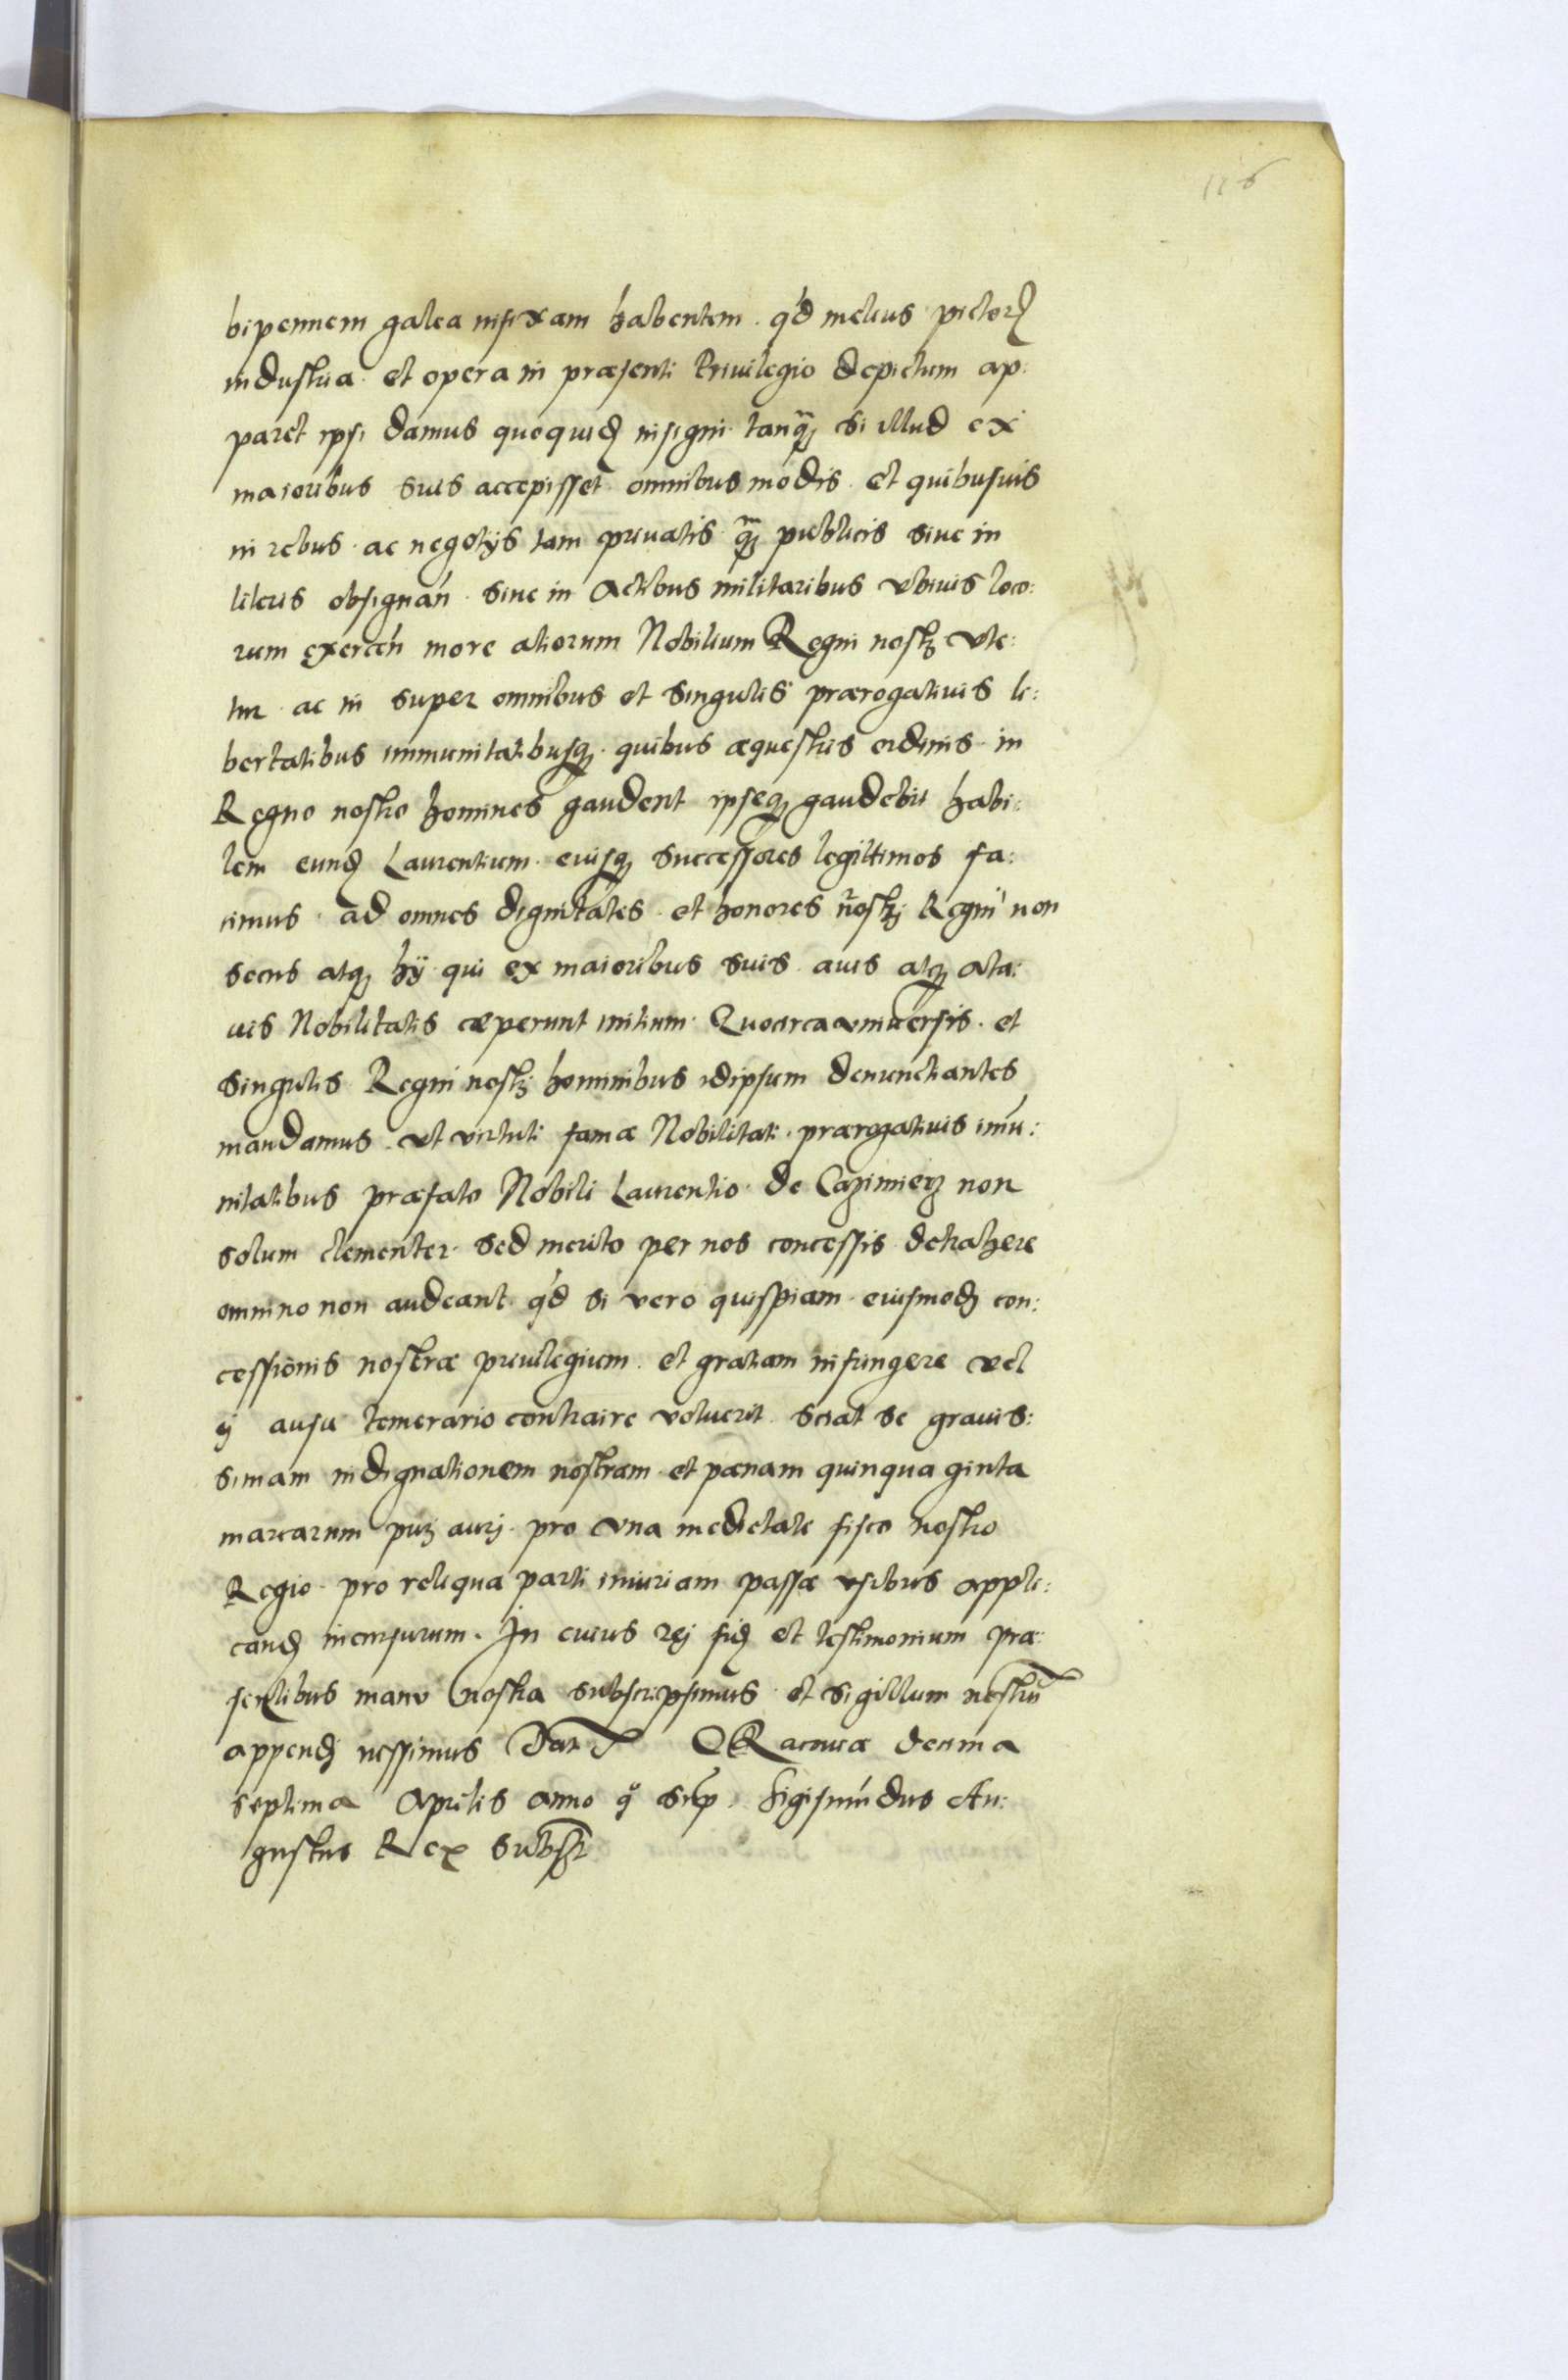 116
bipennem galea infixam habentem. q'd melius pictorꝭ
industria. et opera in præsenti Priuilegio depictum ap:
paret ipsi damus quoquidꝫ insigni. tanq̃ꝫ si illud ex
maioribus suis accepisset. omnibus modis. et quibusuis
in rebus. ac negotijs tam priuatis. q̃ꝫ publicis siue in
literis obsignań. siue in Actibus militaribus vbiuis loco:
rum exerceń more aliorum Nobilium Regni nostrꝫ vte:
tur. ac in super omnibus et singulis prærogatiuis li:
bertatibus immunitatibusqꝫ. quibus æquestris ordinis in
Regno nostro homines gaudent ipseqꝫ gaudebit habi:
lem eundꝫ Laurentium. eiusqꝫ successores legittimos fa:
cimus. ad omnes dignitates. et honores nostrꝫ Regni non
secus atqꝫ hÿ qui ex maioribus suis. auis atqꝫ ata:
uis Nobilitatis cæperunt initium. Quocirca vniuersis. et
singulis Regni nostrꝫ hominibus idipsum denunctiantes
mandamus. vt virtuti famæ Nobilitati. prærogatiuis imū:
nitatibus præfato Nobili Laurentio de Cazimierz non
solum clementer. sed merito per nos concessis detrahere
omnino non audeant. q'd si vero quispiam eiusmodꝫ con:
cessionis nostræ priuilegium. et gratiam infringere vel
ij ausu temerario contraire voluerit. sciat se grauis:
simam indignationem nostram. et pænam quinquaginta
marcarum purꝫ aurj. pro vna medietate fisco nostro
Regio. pro reliqua parti iniuriam passæ vsibus appli:
candꝫ incursurum. In cuius rej fidꝫ et testimonium præ:
sentibus manu nostra subscripsimus. et sigillum nostrū
appendj iussimus Dat CRacouiæ decima
septima Aprilis anno q̊ sup. Sigismūdus Au:
gustus Rex subscr